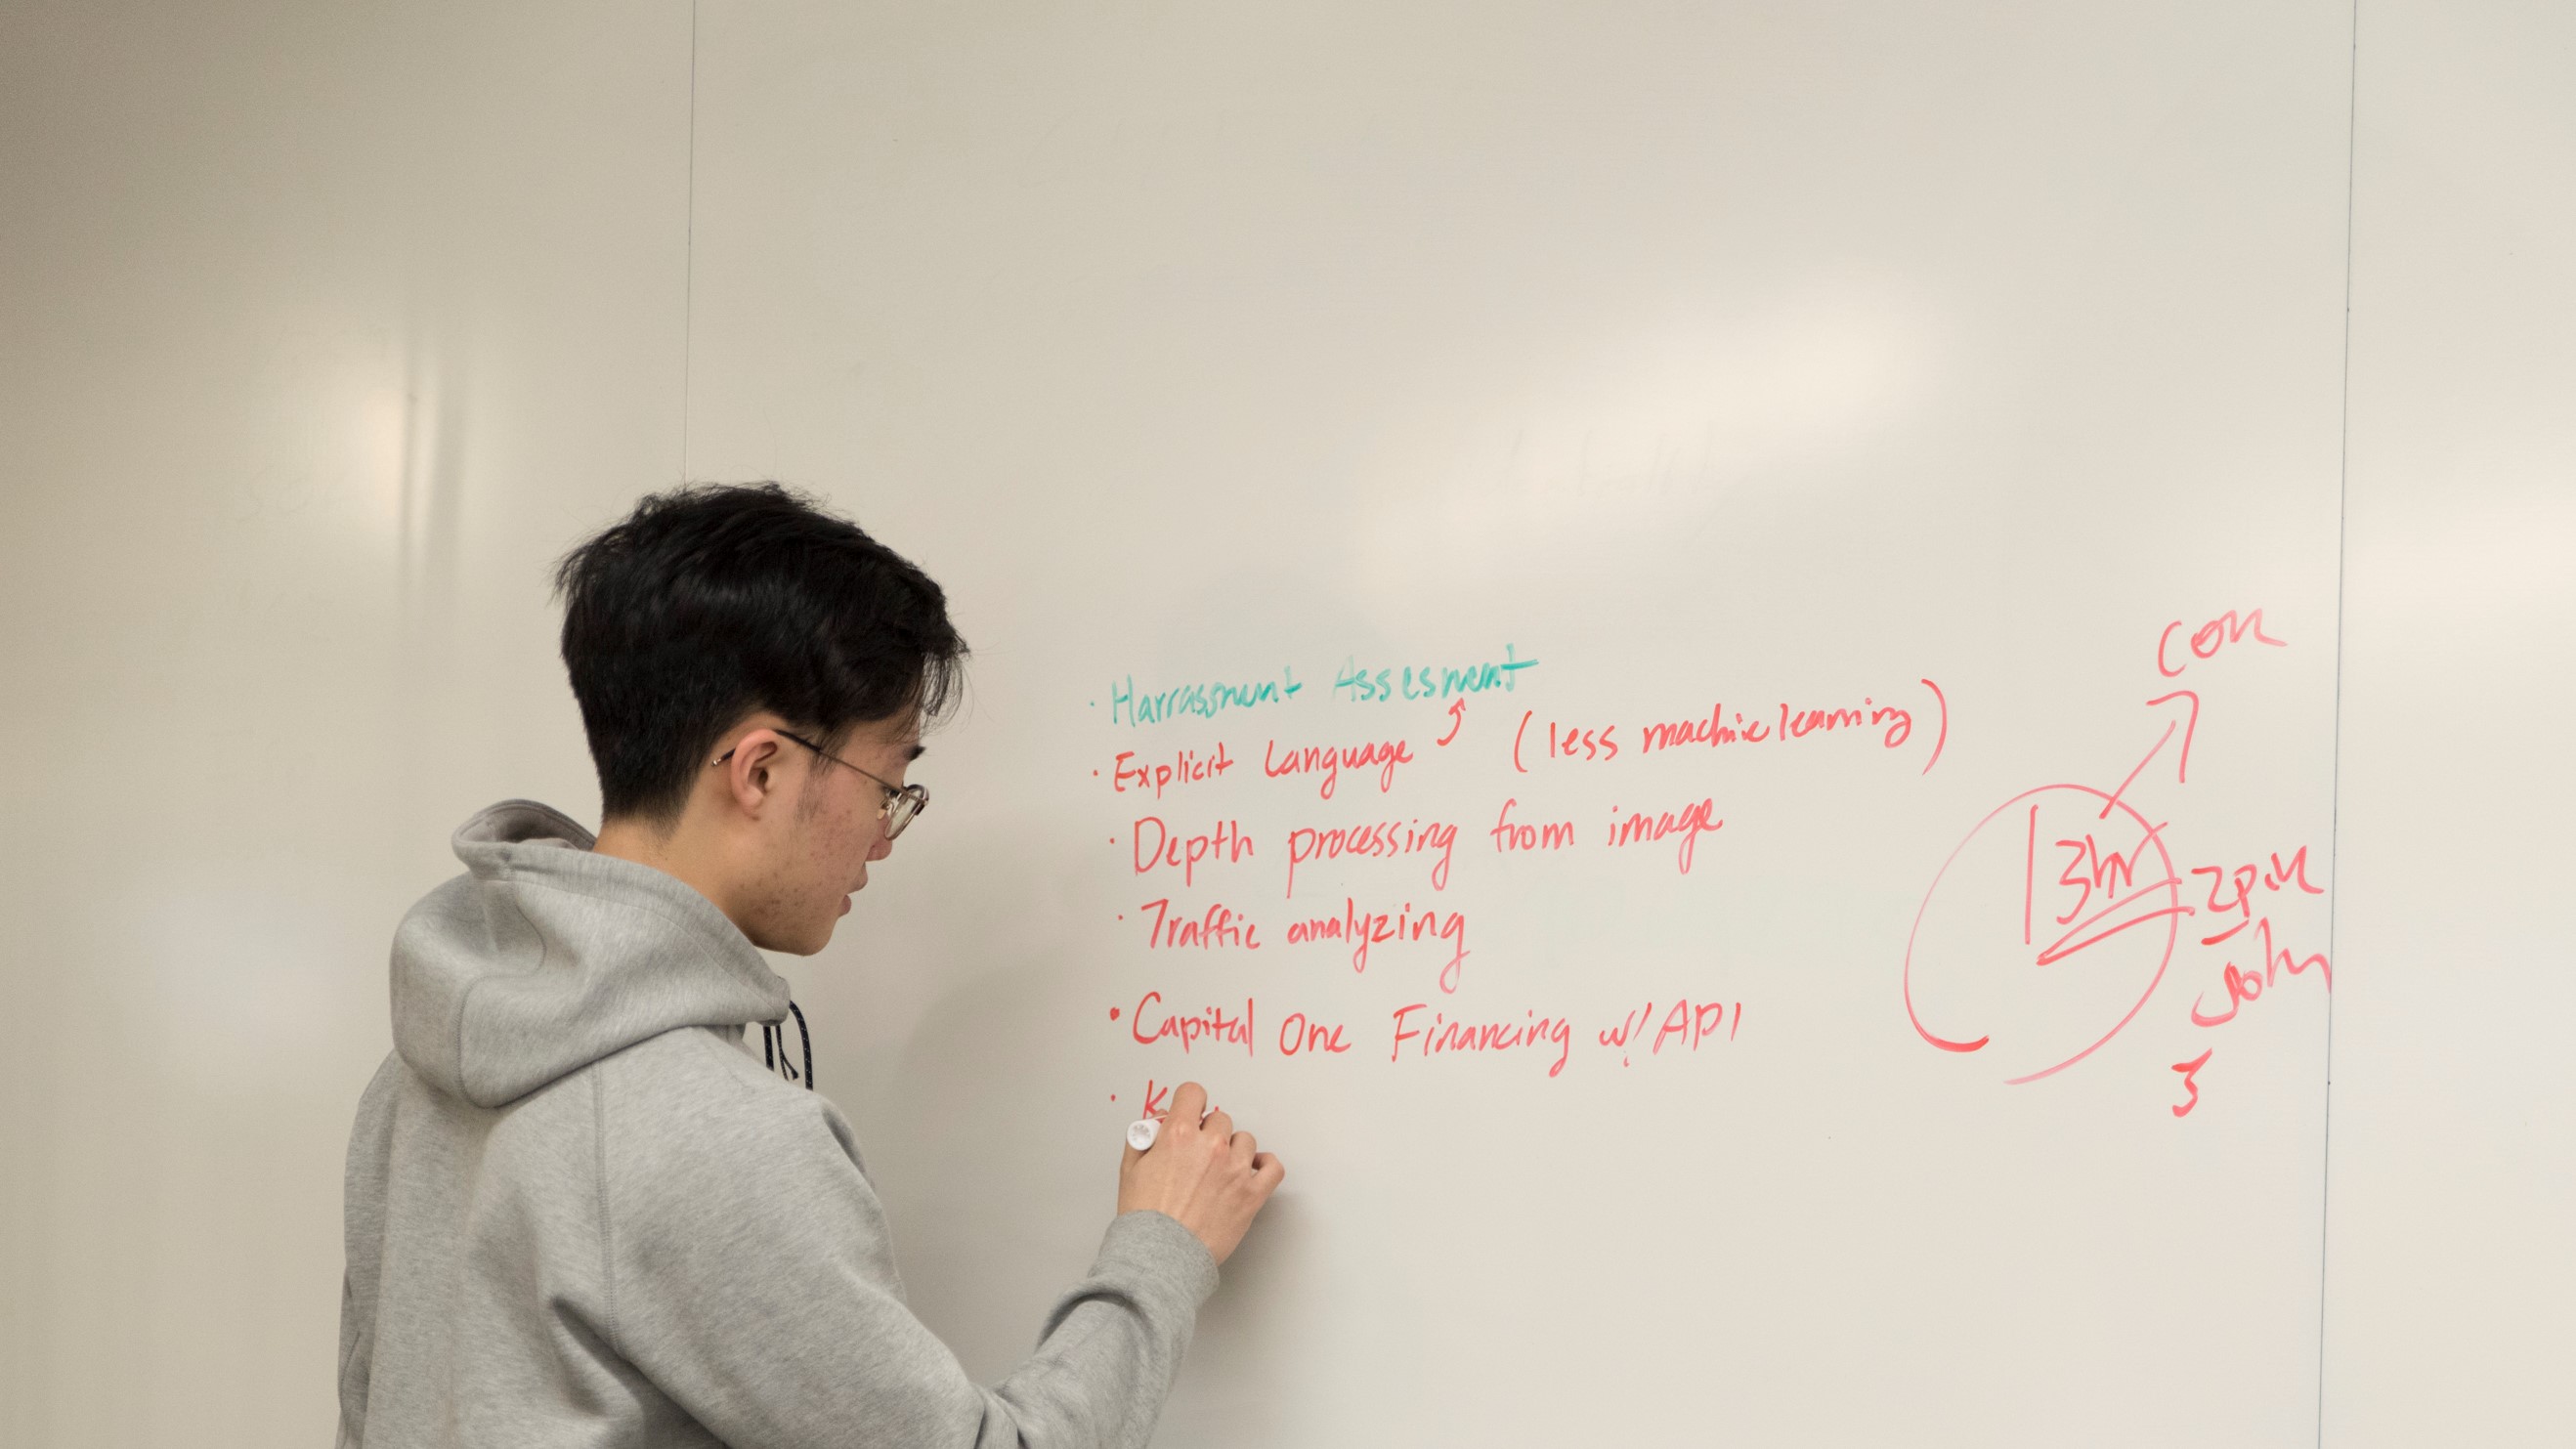 · Harrassment Assesment
· Explicit Language (less machine learning)
· Depth processing from image
· Traffic analyzing
· Capital One Financing w/ API
· K
13hr
John
3